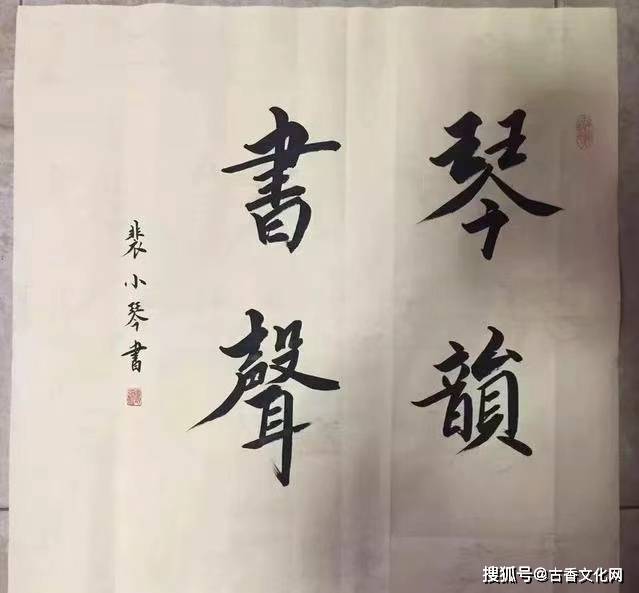 琴韻
書聲
裴小琴書
搜狐号@古香文化网